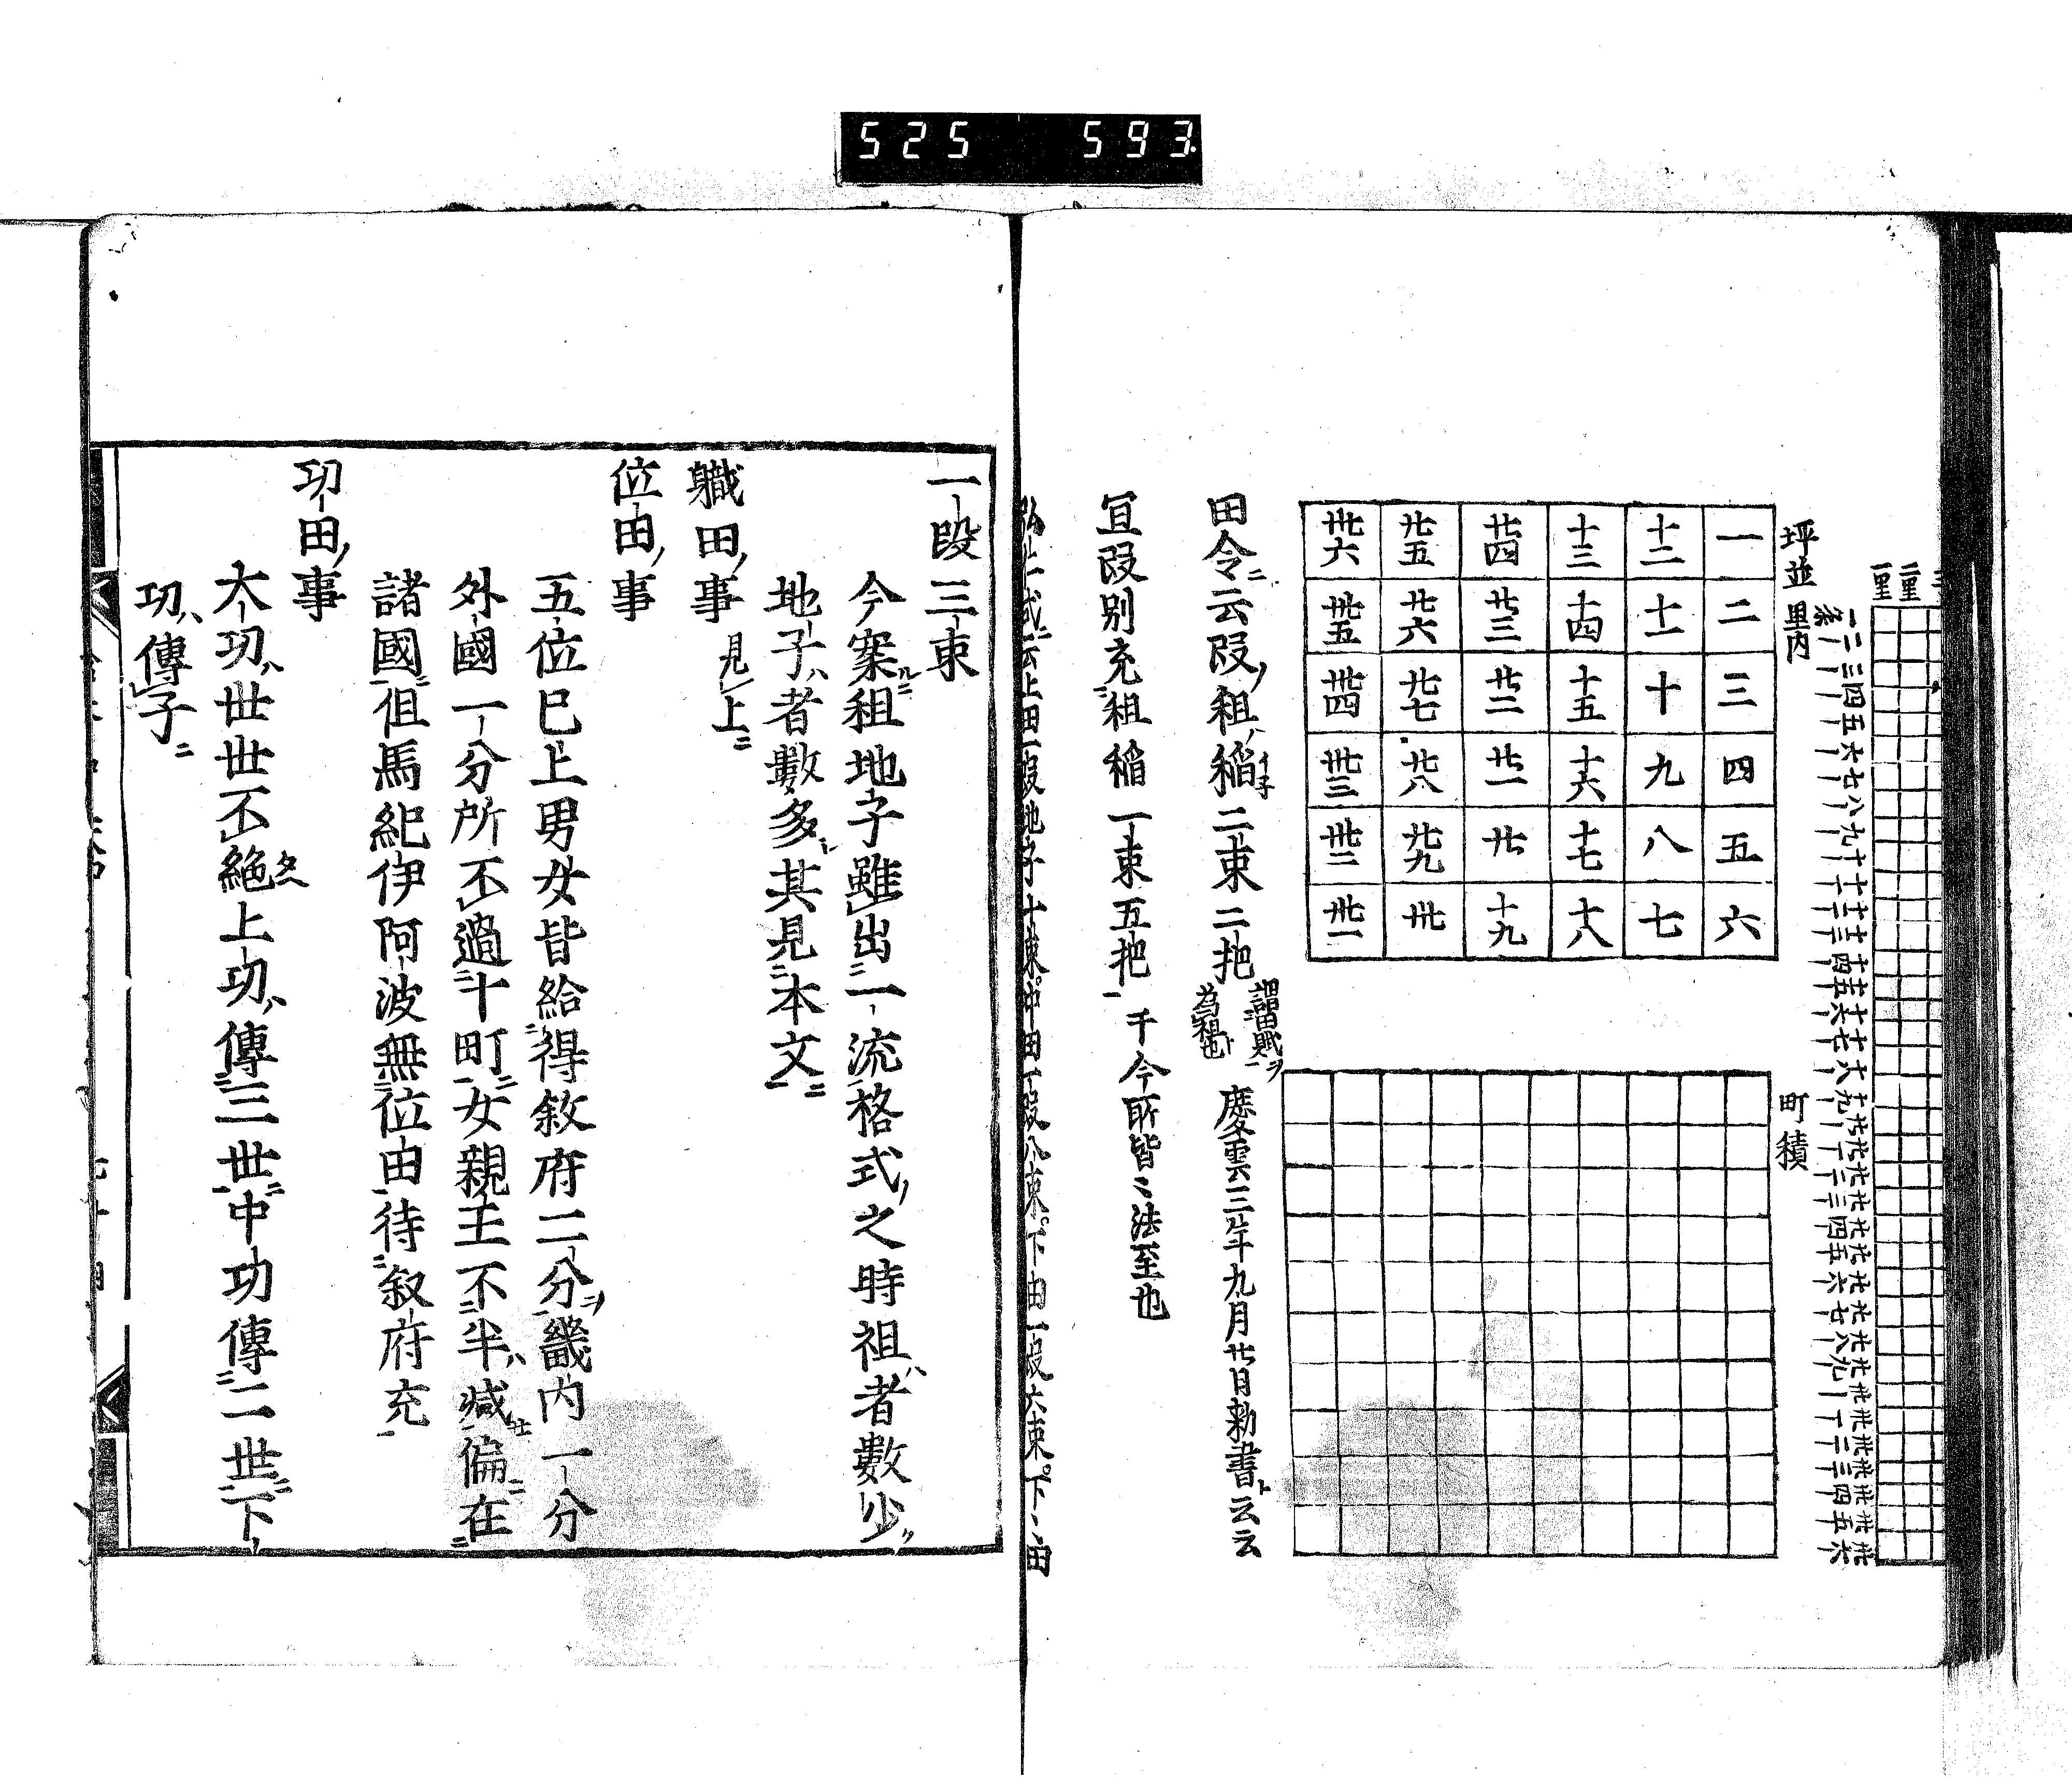 525 593
一里 二里
一条 二 三 四 五 六 七 八 九 十 十一 十二 十三 十四 十五 十六 十七 十八 十九 廿 廿一 廿二 廿三 廿四 廿五 廿六 廿七 廿八 廿九 卅 卅一 卅二 卅三 卅四 卅五 卅六
坪並 里内
一 二 三 四 五 六
十二 十一 十 九 八 七
十三 十四 十五 十六 十七 十八
廿四 廿三 廿二 廿一 廿 十九
廿五 廿六 廿七 廿八 廿九 卅
卅六 卅五 卅四 卅三 卅二 卅一
町積
田令ニ云段ノ租ハ稲イネ二束二把 謂田賦ヲ為租也 慶雲三年九月廿日勅書ト云云
宜段別充租稲一束五把 于今所皆法至也
弘仁式云上田一段地子十束中田一段八束下田一段六束下々田
一段三束
今案ルニ租地子雖出一流格式ノ之時祖ハ者數少
地子ハ者數多其見本文ニ
職田ノ事 見上ニ
位田ノ事
五位已上男女皆給得敘府二分ヲ畿内一分
外國一分所不過十町女親王不半ハ減偏在
諸國但馬紀伊阿波無位田待叙府充
功田ノ事
大功ハ世世不絶タヘ上功ハ傳三世中功傳二世下
功ハ傳子ニ